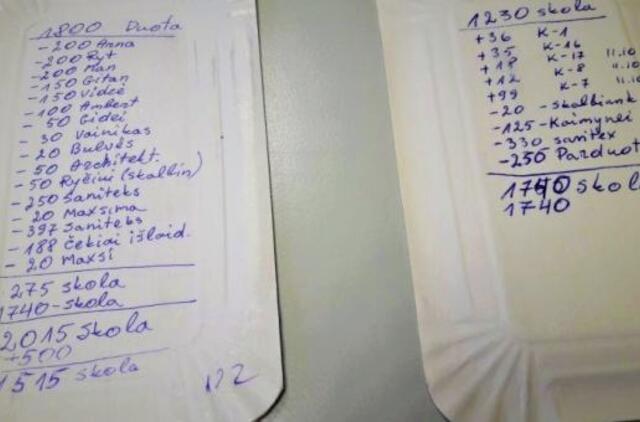 1800 Duota
-200 Anna
-200 Ryt
-200 Man
-150 Gitan
-150 Videi
-100 Ambest
- 50 Gidei
- 30 Vainikas
- 20 Bulvės
- 50 Architekt.
-50 Ryčiui (skalbin)
-250 Saniteks
- 20 Maxsima
-397 Saniteks
-188 Čekiai išlaid.
- 20 Maxsi
275 skola
1740-skola
2015 skola
+500
1515 skola
N2
1230 skola
+36 K-1
+35 K-16
+18 K-17 11.10
+12 K-8 11.10
+99 K-7
-20 -skalbiank
-125-Kaimynei
-330 sanitex
-250 Parduot
1740 skol
1740